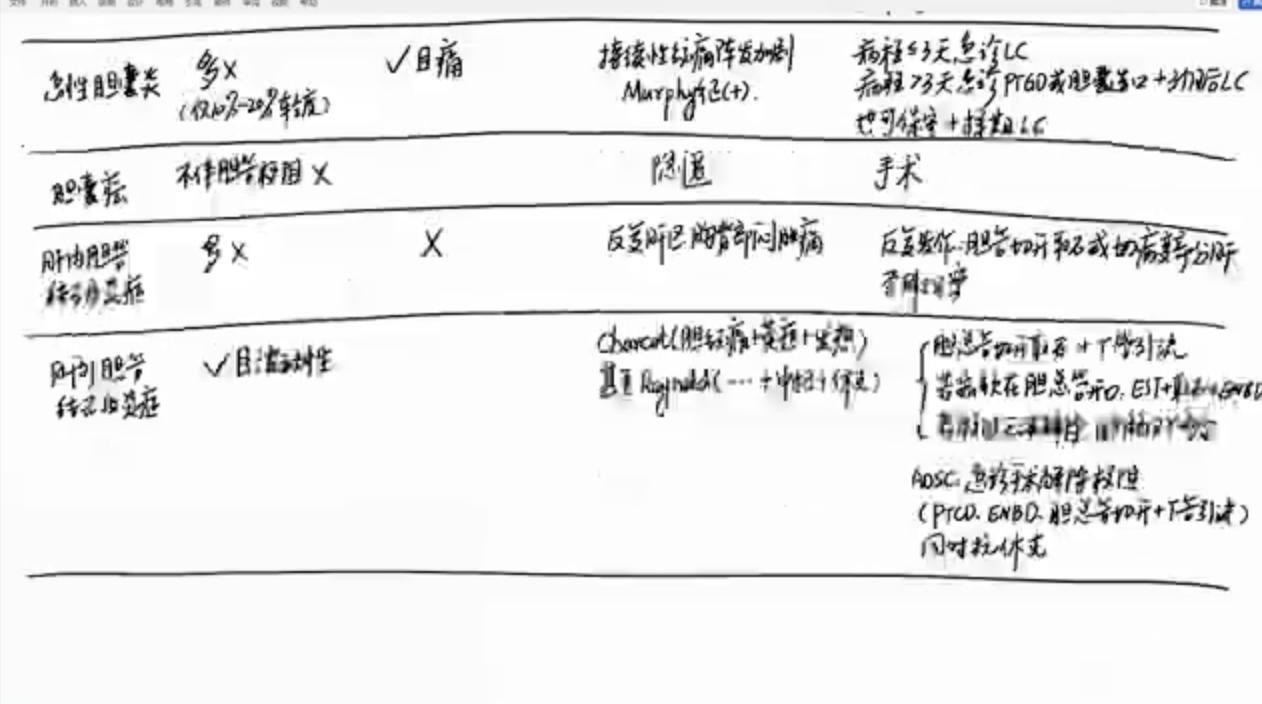 急性胆囊炎
多×
(仅10%-20%轻度)
✓且痛
持续性绞痛阵发加剧
Murphy征(+).
病程≤3天急诊LC
病程>3天急诊PTGD或胆囊造口+择期LC
也可保守+择期LC
胆囊癌
不伴胆管梗阻×
隐匿
手术
肝内胆管
结石及炎症
多×
×
反复肝区胸背部闷胀痛
反复发作:胆管切开取石或切病变部分肝
肝外胆管
结石及炎症
✓且波动性
Charcot(胆绞痛+黄疸+发热)
甚至Reynolds(…+中枢+休克)
胆总管切开取石+T管引流
在胆总管开口:EST+取石+ENBD
AOSC:急诊手术解除梗阻
(PTCD、ENBD、胆总管切开+T管引流)
同时抗休克